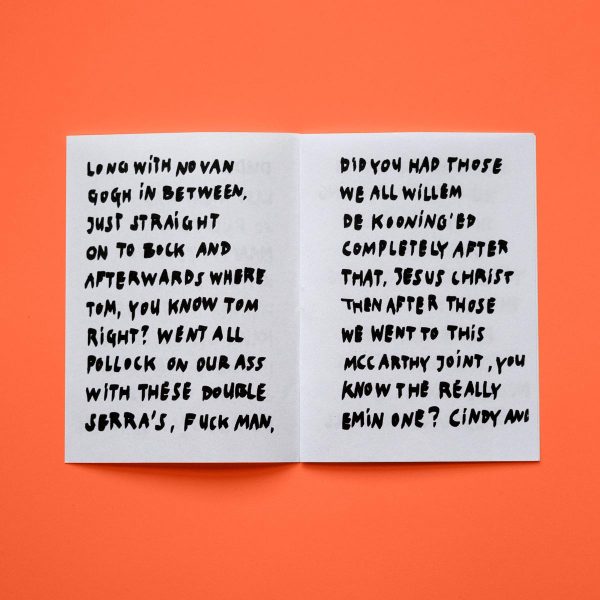 LONG WITH NO VAN
GOGH IN BETWEEN,
JUST STRAIGHT
ON TO BOCK AND
AFTERWARDS WHERE
TOM, YOU KNOW TOM
RIGHT? WENT ALL
POLLOCK ON OUR ASS
WITH THESE DOUBLE
SERRA'S, FUCK MAN,
DID YOU HAD THOSE
WE ALL WILLEM
DE KOONING'ED
COMPLETELY AFTER
THAT, JESUS CHRIST
THEN AFTER THOSE
WE WENT TO THIS
MCCARTHY JOINT, YOU
KNOW THE REALLY
EMIN ONE? CINDY AND